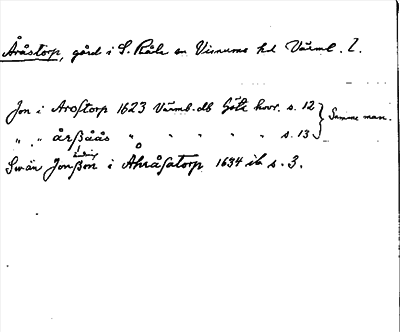 Åråstorp, gård i S. Råda sn Visnums hd Värml. l.
Jon i Arostorp 1623 Värml. db Göta hovr. s. 12 } Samme man.
" " årßåås " " " " " s. 13
Swän Jonßon i Ahråsatorp 1634 ib s. 3.